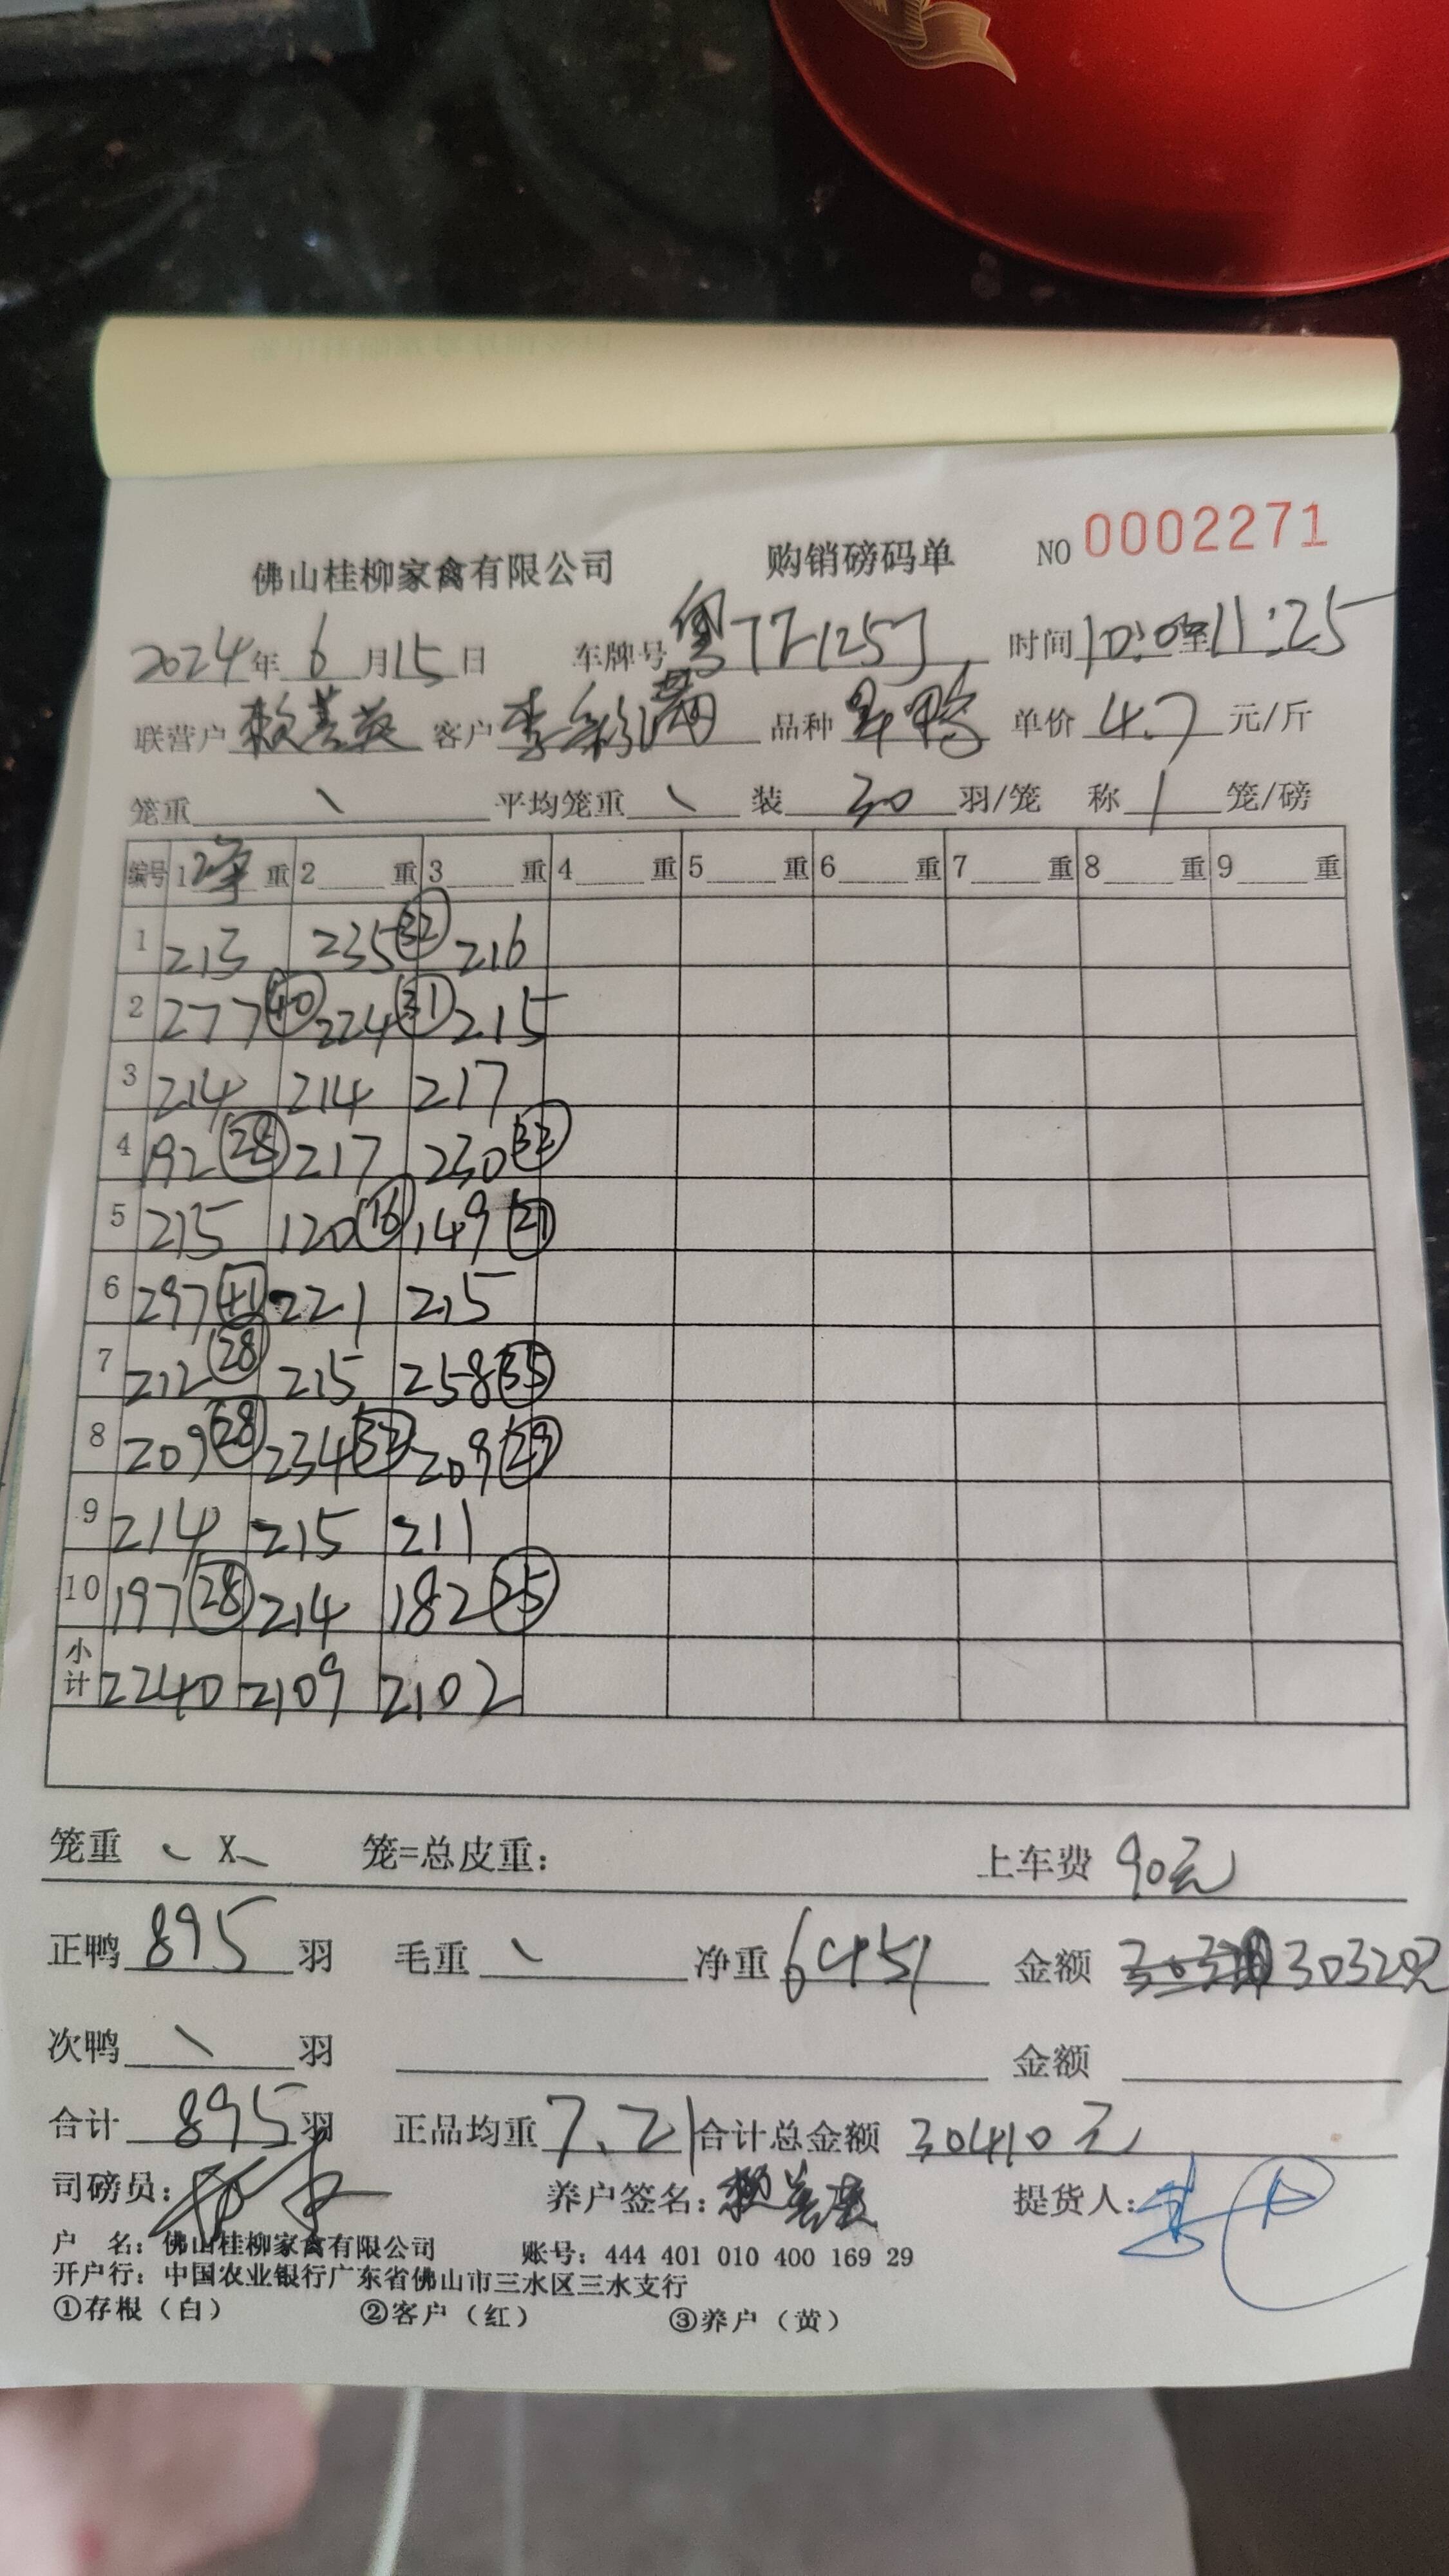 佛山桂柳家禽有限公司 购销磅码单 NO 0002271
2024年 6月15日 车牌号 粤 时间10:0至11:25
联营户 赖善英 客户 李彩 品种 鸭 单价 4.7 元/斤
笼重 \ 平均笼重 \ 装 30 羽/笼 称 1 笼/磅
编号 1净重 2 重 3 重 4 重 5 重 6 重 7 重 8 重 9 重
1 213 235 32 216
2 277 40 224 31 215
3 214 214 217
4 192 28 217 230 32
5 215 120 16 149 21
6 297 41 221 215
7 212 28 215 258 35
8 209 28 234 32 209 29
9 214 215 211
10 197 28 214 182 25
小计 2240 2109 2102
笼重 \ X \ 笼=总皮重: 上车费 90元
正鸭 895 羽 毛重 \ 净重 6451 金额 30320元
次鸭 \ 羽 金额
合计 895 羽 正品均重 7.21 合计总金额 30410元
司磅员: 养户签名: 赖善英 提货人:
户 名: 佛山桂柳家禽有限公司 账号: 444 401 010 400 169 29
开户行: 中国农业银行广东省佛山市三水区三水支行
①存根(白) ②客户(红) ③养户(黄)